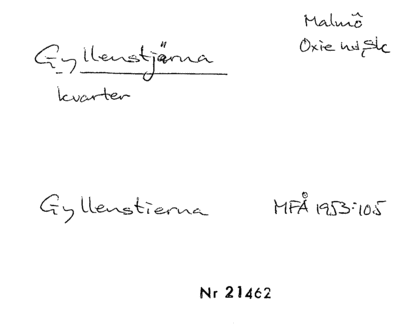 Malmö
Oxie hd, sk
Gyllenstjärna
kvarter
Gyllenstierna MFÅ 1953:105
Nr 21462